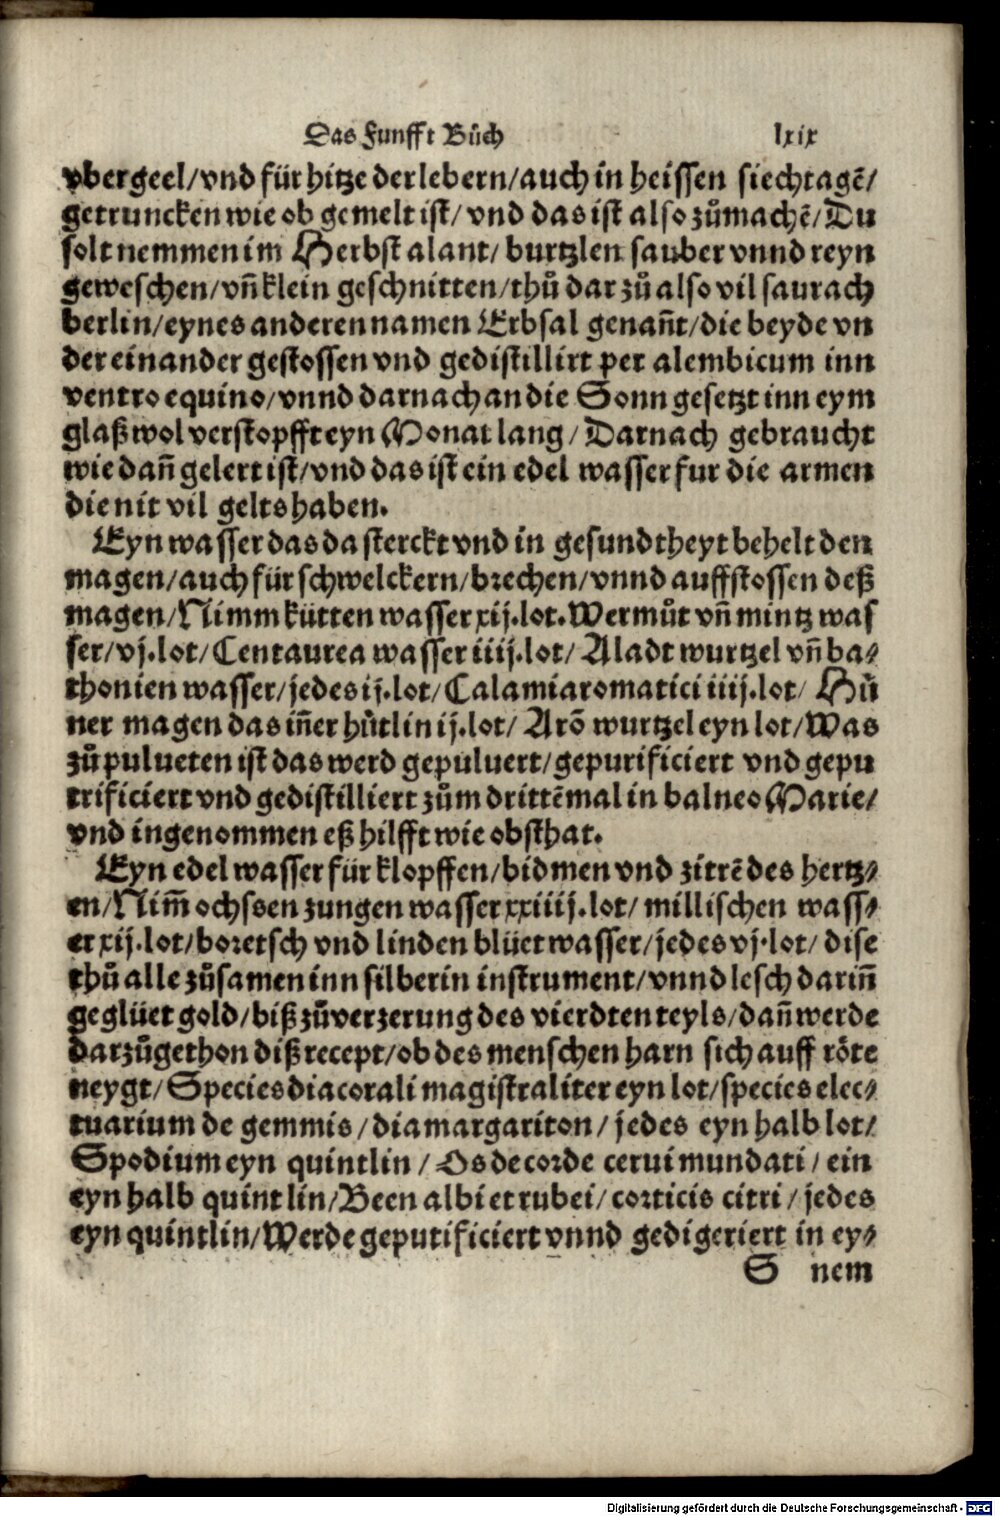 Das Funfft Bůch lxix
vber geel/vnd für hitze der lebern/auch in heissen siechtagē/
getruncken wie ob gemelt ist/ vnd das ist also zůmachē/Du
solt nemmen im Herbst alant/ burtzlen sauber vnnd reyn
geweschen/vñ klein geschnitten/thů dar zů also vil saurach
berlin/eynes anderen namen Erbsal genañt/die beyde vn
der einander gestossen vnd gedistillirt per alembicum inn
ventro equino/vnnd darnach an die Sonn gesetzt inn eym
glaß wol verstopfft eyn Monat lang / Darnach gebraucht
wie dañ gelert ist/vnd das ist ein edel wasser fur die armen
die nit vil gelts haben.
Eyn wasser das da sterckt vnd in gesundtheyt behelt den
magen/auch für schwelckern/brechen/vnnd auffstossen deß
magen/Nimm kütten wasser xij.lot.Wermůt vñ mintz was
ser/vj.lot/Centaurea wasser iiij.lot/ Aladt wurtzel vñ ba⸗
thonien wasser/jedes ij.lot/Calami aromatici iiij.lot/ Hů
ner magen das iñer hůtlin ij.lot/ Arō wurtzel eyn lot/Was
zů pulueten ist das werd gepuluert/gepurificiert vnd gepu
trificiert vnd gedistilliert zům drittē mal in balneo Marie/
vnd ingenommen eß hilfft wie obsthat.
Eyn edel wasser für klopffen/bidmen vnd zitrē des hertz⸗
en/Nim̄ ochssen zungen wasser xxiiij.lot/ millischen wass⸗
er xij.lot/boretsch vnd linden blüet wasser/jedes vj.lot/ dise
thů alle zůsamen inn silberin instrument/vnnd lesch dariñ
geglüet gold/biß zů verzerung des vierdten teyls/dañ werde
darzů gethon diß recept/ob des menschen harn sich auff röte
neygt/Species diacorali magistraliter eyn lot/species elec⸗
tuarium de gemmis/diamargariton/jedes eyn halb lot/
Spodium eyn quintlin/Os de corde cerui mundati/ein
eyn halb quintlin/Been albi et rubei/corticis citri/jedes
eyn quintlin/Werde geputificiert vnnd gedigeriert in ey⸗
S nem
Digitalisierung gefördert durch die Deutsche Forschungsgemeinschaft - DFG